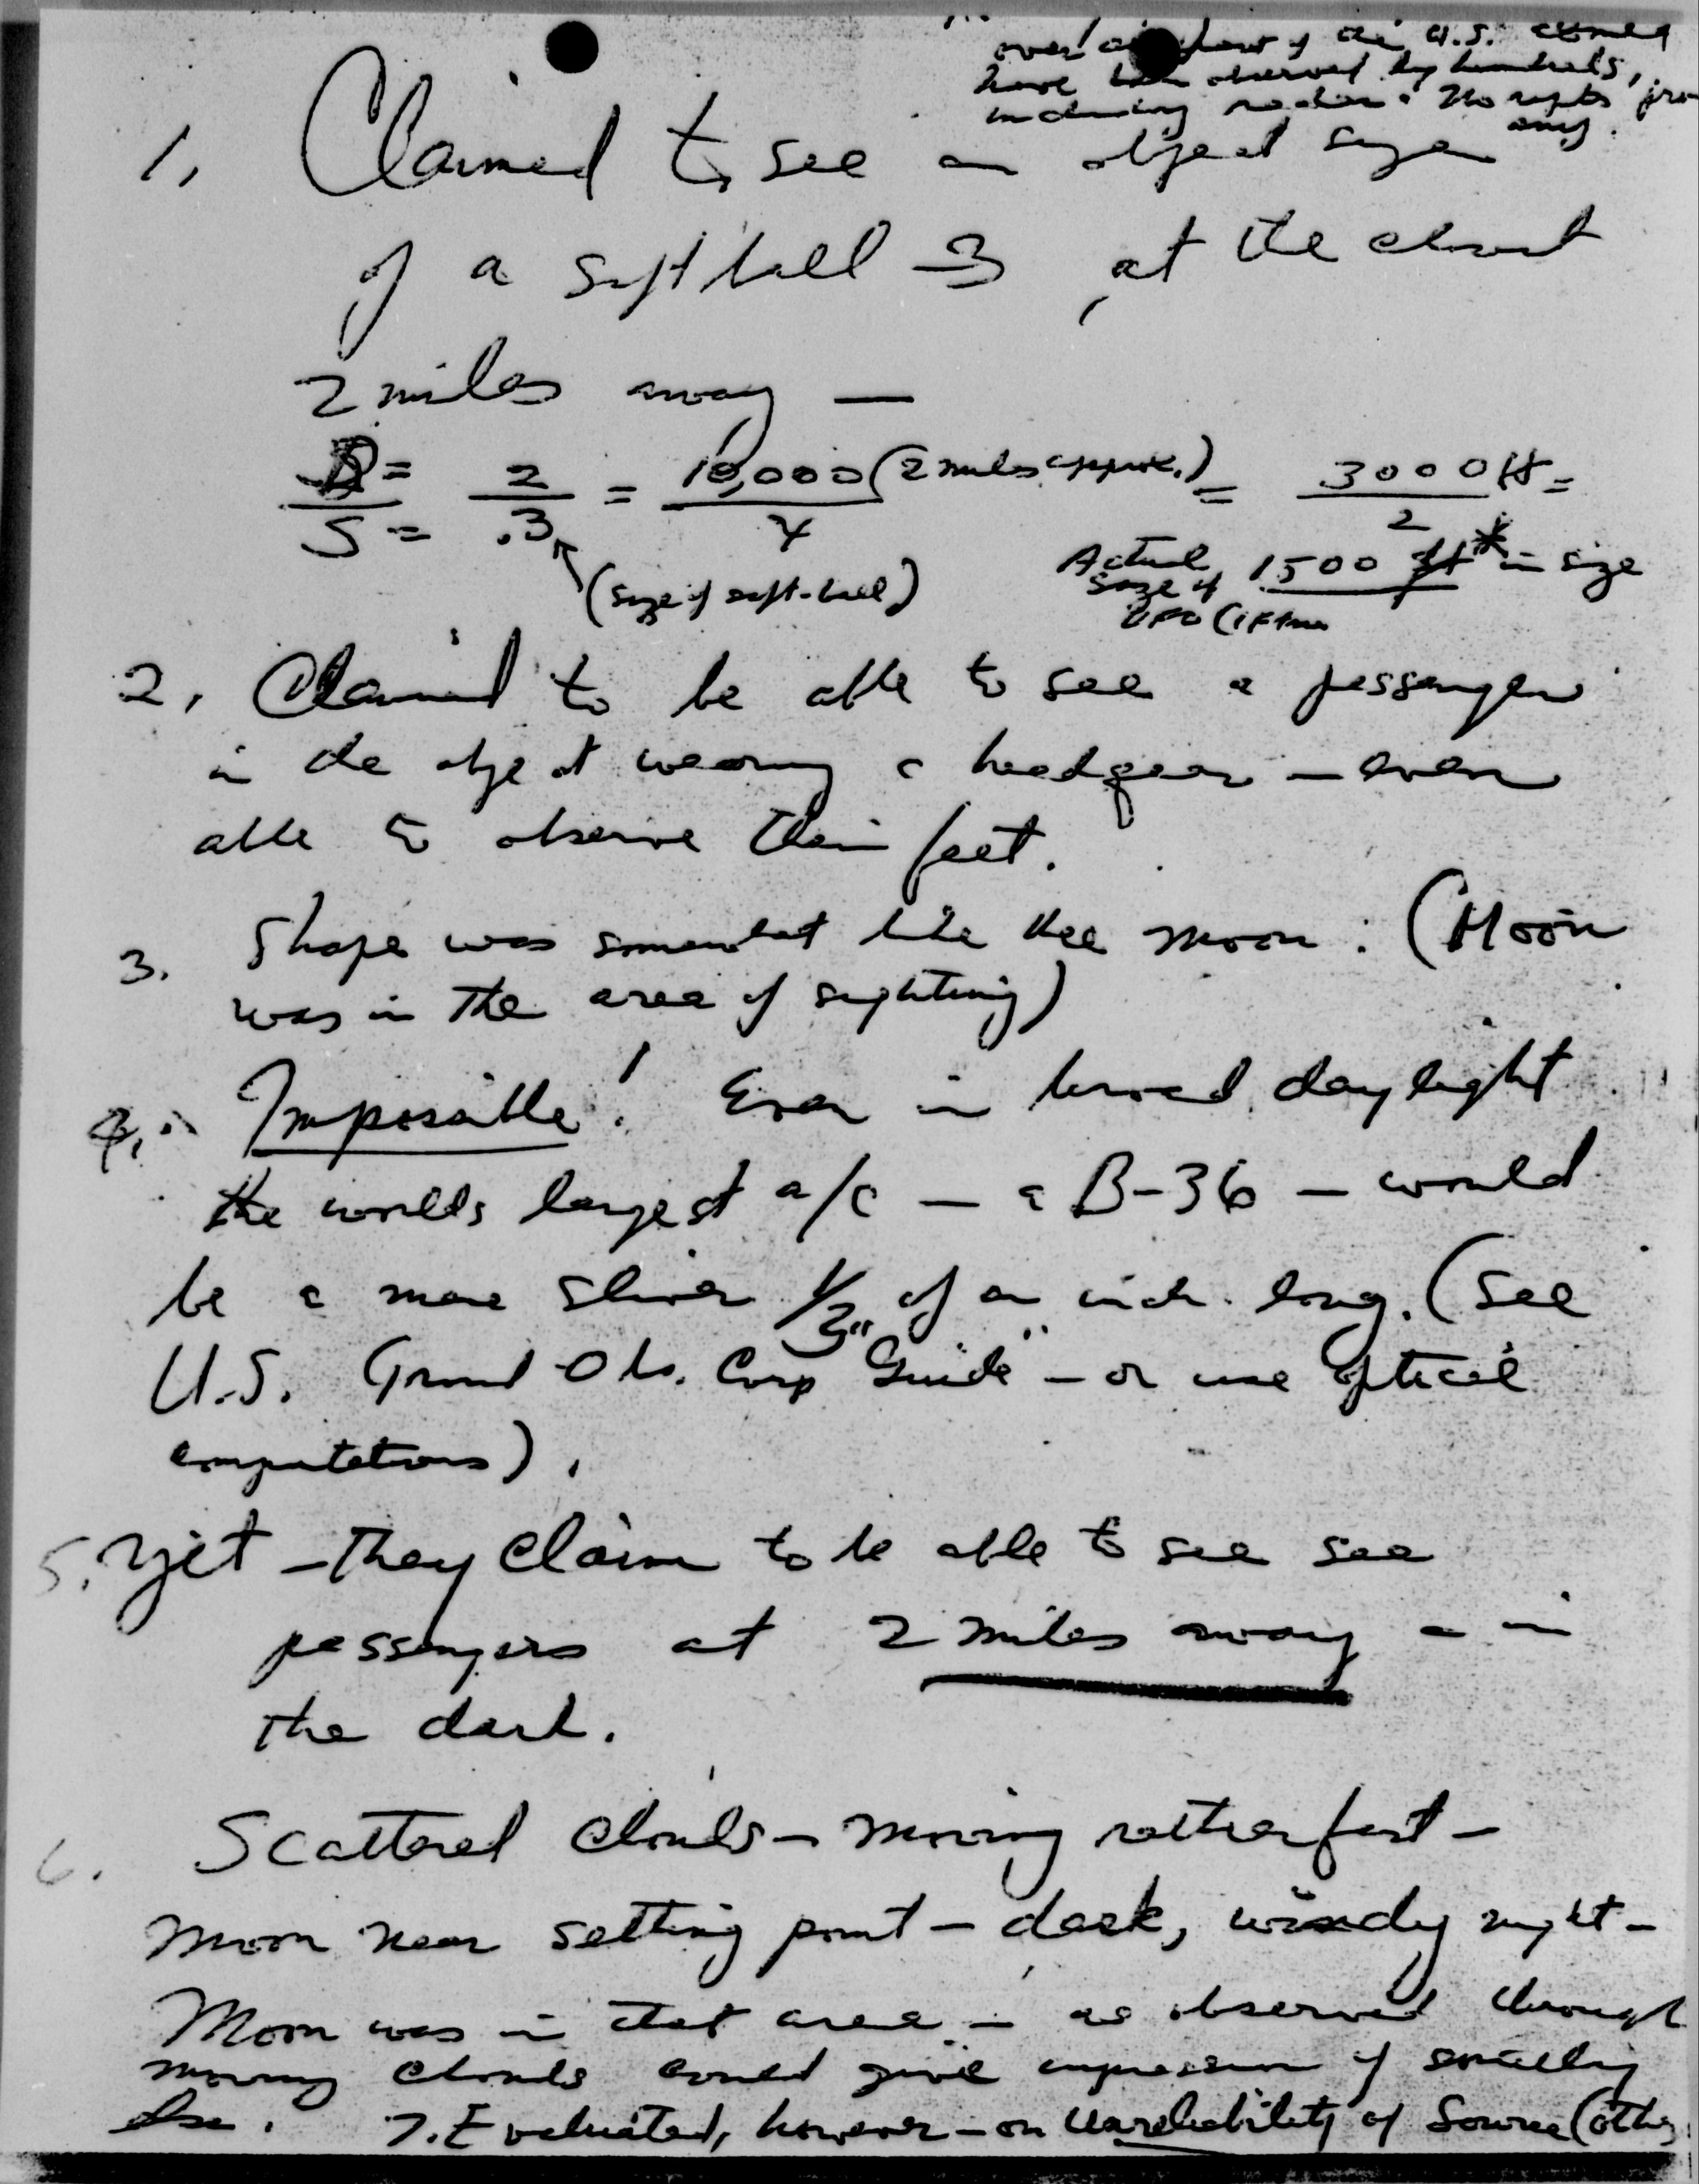 over any part of the U.S. could
have been observed by hundreds,
including radar. No repts from
any.
1. Claimed to see an object size
of a softball — 3 at the
2 miles away —
D = 2 = 10,000 (2 miles approx.) = 3000 ft =
S = .3 4 2
(size of soft-ball)
Actual 1500 ft * in size
size of
UFO (if true
2. Claimed to be able to see a passenger
in the object wearing a headgear — even
able to observe their feet.
3. Shape was somewhat like the moon: (Moon
was in the area of sighting)
4. Impossible! Even in broad daylight
the worlds largest a/c — a B-36 — would
be a mere sliver 1/3 of an inch long. (See
U.S. Ground Obs. Corp "Guide" — or use optical
computations).
5. Yet — they claim to be able to see see
passengers at 2 miles away — in
the dark.
6. Scattered clouds — moving rather fast —
Moon near setting point — dark, windy night —
Moon was in that area — as observed through
moving clouds could give impression of
else. 7. Evaluated, however — on Unreliability of Source (other